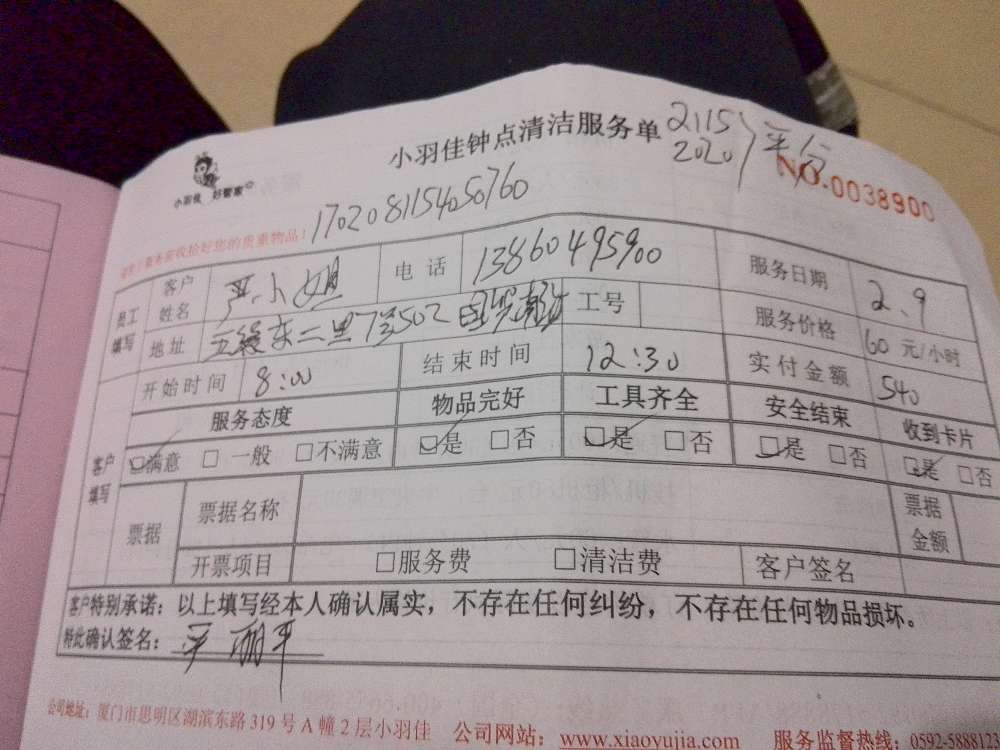 小羽佳钟点清洁服务单
2115
2020
平分
小羽佳 好管家
NO.0038900
1702081154050760
您的贵重物品！
员工填写 客户姓名 严小姐 电话 13860495900 服务日期 2.9
地址 东二里 502 工号 服务价格 60 元/小时
开始时间 8:00 结束时间 12:30 实付金额 540
服务态度 物品完好 工具齐全 安全结束 收到卡片
客户填写 ☑满意 □ 一般 □不满意 ☑是 □否 ☑是 □否 ☑是 □否 ☑是 □否
票据 票据名称 票据金额
开票项目 □服务费 □清洁费 客户签名
客户特别承诺：以上填写经本人确认属实，不存在任何纠纷，不存在任何物品损坏。
特此确认签名：
公司地址：厦门市思明区湖滨东路 319 号 A 幢 2 层小羽佳 公司网站：www.xiaoyujia.com 服务监督热线：0592-5888123